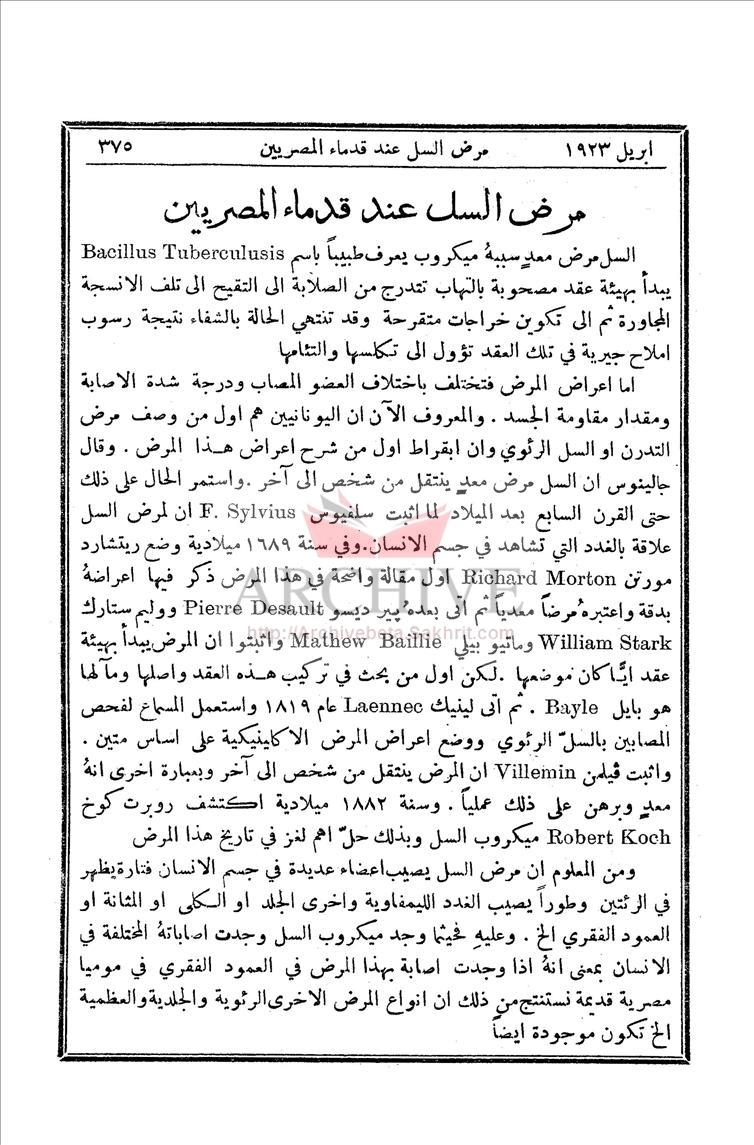 ابريل ١٩٢٣ مرض السل عند قدماء المصريين ٣٧٥
مرض السل عند قدماء المصريين
السل مرض معدٍ سببهُ ميكروب يعرف طبيباً باسم Bacillus Tuberculusis
يبدأ بهيئة عقد مصحوبة بالتهاب تتدرج من الصلابة الى التقيح الى تلف الانسجة
المجاورة ثم الى تكوين خراجات متقرحة وقد تنتهي الحالة بالشفاء نتيجة رسوب
املاح جيرية في تلك العقد تؤول الى تكلسها والتئامها
اما اعراض المرض فتختلف باختلاف العضو المصاب ودرجة شدة الاصابة
ومقدار مقاومة الجسد . والمعروف الآن ان اليونانيين هم اول من وصف مرض
التدرن او السل الرئوي وان ابقراط اول من شرح اعراض هـذا المرض . وقال
جالينوس ان السل مرض معدٍ ينتقل من شخص الى آخر . واستمر الحال على ذلك
حتى القرن السابع بعد الميلاد لما اثبت سلفيوس F. Sylvius ان لمرض السل
علاقة بالغدد التي تشاهد في جسم الانسان . وفي سنة ١٦٨٩ ميلادية وضع ريتشارد
مورتن Richard Morton اول مقالة واضحة في هذا المرض ذكر فيها اعراضهُ
بدقة واعتبرهُ مرضاً معدياً ثم اتى بعدهُ پيير ديسو Pierre Desault ووليم ستارك
William Stark وماثيو بيلي Mathew Baillie واثبتوا ان المرض يبدأ بهيئة
عقد ايًّا كان موضعها . لكن اول من بحث في تركيب هـذه العقد واصلها ومآلها
هو بايل Bayle . ثم اتى لينيك Laennec عام ١٨١٩ واستعمل المسماع لفحص
المصابين بالسلّ الرئوي ووضع اعراض المرض الاكلينيكية على اساس متين .
واثبت ڤيلمن Villemin ان المرض ينتقل من شخص الى آخر وبعبارة اخرى انهُ
معدٍ وبرهن على ذلك عملياً . وسنة ١٨٨٢ ميلادية اكتشف روبرت كوخ
Robert Koch ميكروب السل وبذلك حلّ اهم لغز في تاريخ هذا المرض
ومن المعلوم ان مرض السل يصيب اعضاء عديدة في جسم الانسان فتارة يظهر
في الرئتين وطوراً يصيب الغدد الليمفاوية واخرى الجلد او الـكلى او المثانة او
العمود الفقري الخ . وعليهِ فحيثما وجد ميكروب السل وجدت اصاباتهُ المختلفة في
الانسان بمعنى انهُ اذا وجدت اصابة بهذا المرض في العمود الفقري في موميا
مصرية قديمة نستنتج من ذلك ان انواع المرض الاخرى الرئوية والجلدية والعظمية
الخ تكون موجودة ايضاً
ARCHIVE
http://Archivebeta.Sakhrit.com